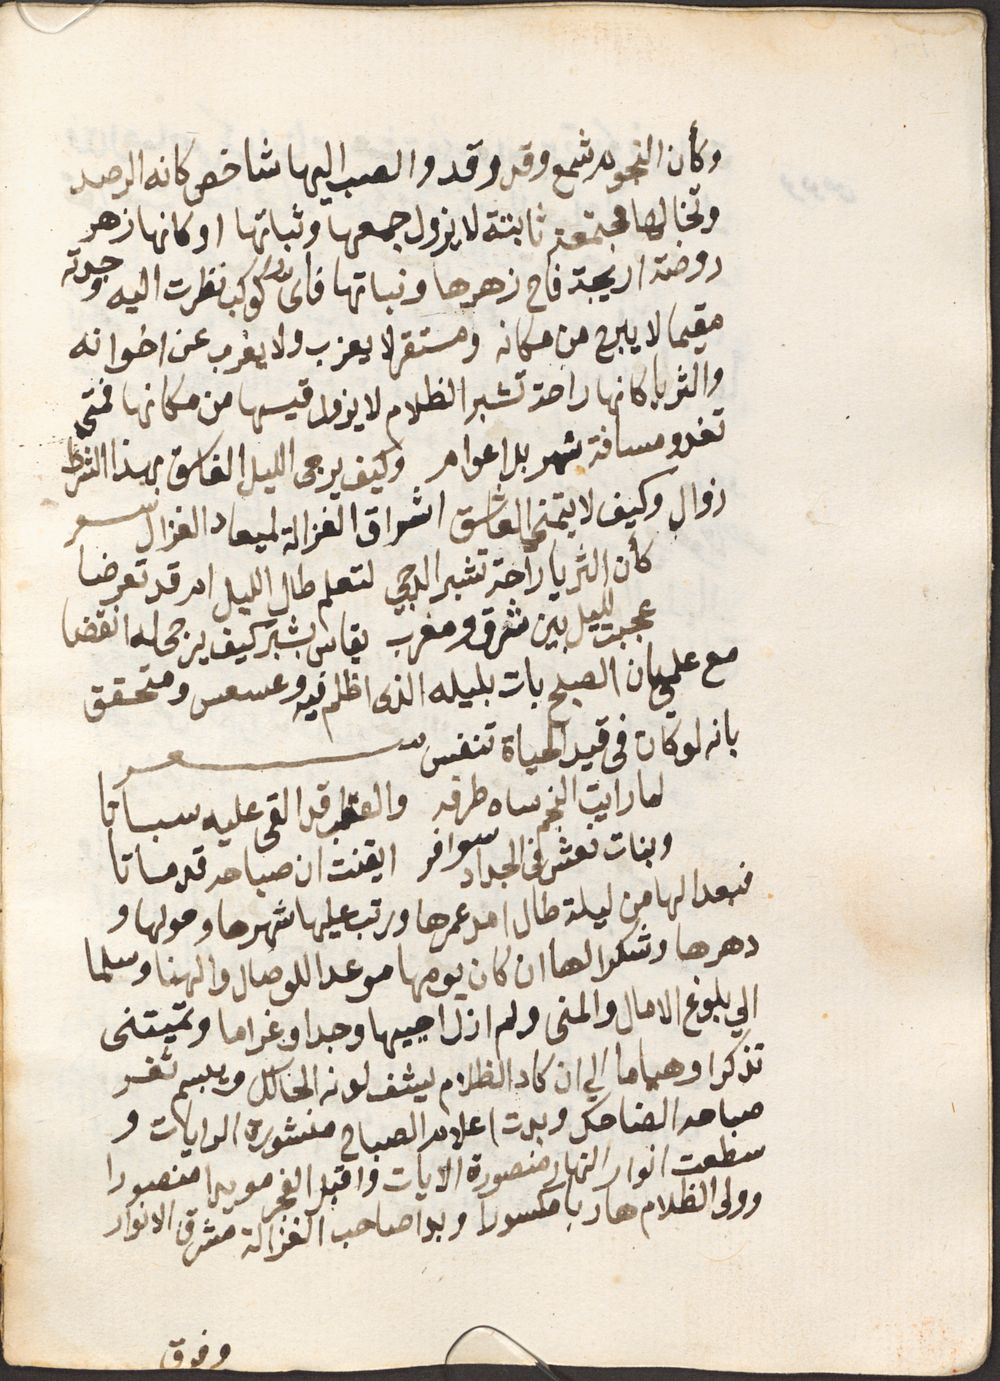 وكأن النجوم شمع وقد وقد والصب اليها شاخص كانه الرصد
وتخالها مجتمعة ثابتة لا يزول جمعها وثباتها او كانها زهر
روضة اريجة فاح زهرها ونباتها فاى كوكب نظرت اليه وجدته
مقيما لا يبرح من مكانه ومستقر لا يعزب ولا يغرب عن اخوانه
والثريا كانها راحة تشبر الظلام لا يزول قيسها من مكانها فمتى
تغدو مسافة شهر بل اعوام وكيف يرجى لليل الغاسق بهذا الشرط
زوال وكيف لا يتمنى العاشق اشراق الغزالة لميعاد الغزال شعر
كأن الثريا راحة تشبر الدجى لتعلم طال الليل ام قد تعرضا
عجبت لليل بين شرق ومغرب يقاس بشبر كيف يرجى له انقضا
مع علمي بان الصبح بات بليله الذى اظلم فيه وعسعس ومتحقق
بانه لو كان فى قيد الحياة تنفس شعر
لما رايت النجم ساه طرفه والقطب قد القى عليه سباتا
وبنات نعش فى الحداد سوافر ايقنت ان صباحه قد ماتا
فبعدا لها من ليلة طال امد عمرها ورتب عليها شهرها وحولها و
دهرها وشكرا لها ان كان يومها موعدا للوصال والهنا وسلما
الي بلوغ الامال والمنى ولم ازل احييها وجدا وغراما وتميتنى
تذكرا وهياما الي ان كاد الظلام يشف لونه الحالك ويبسم ثغر
صباحه الضاحك وبدت اعلام الصباح منشورة الرايات و
سطعت انوار النهار منصورة الايات واقبل الفجر مويدا منصورا
وولى الظلام هاربا مكسورا وبدا صاحب الغزالة مشرق الانوار
وفرق